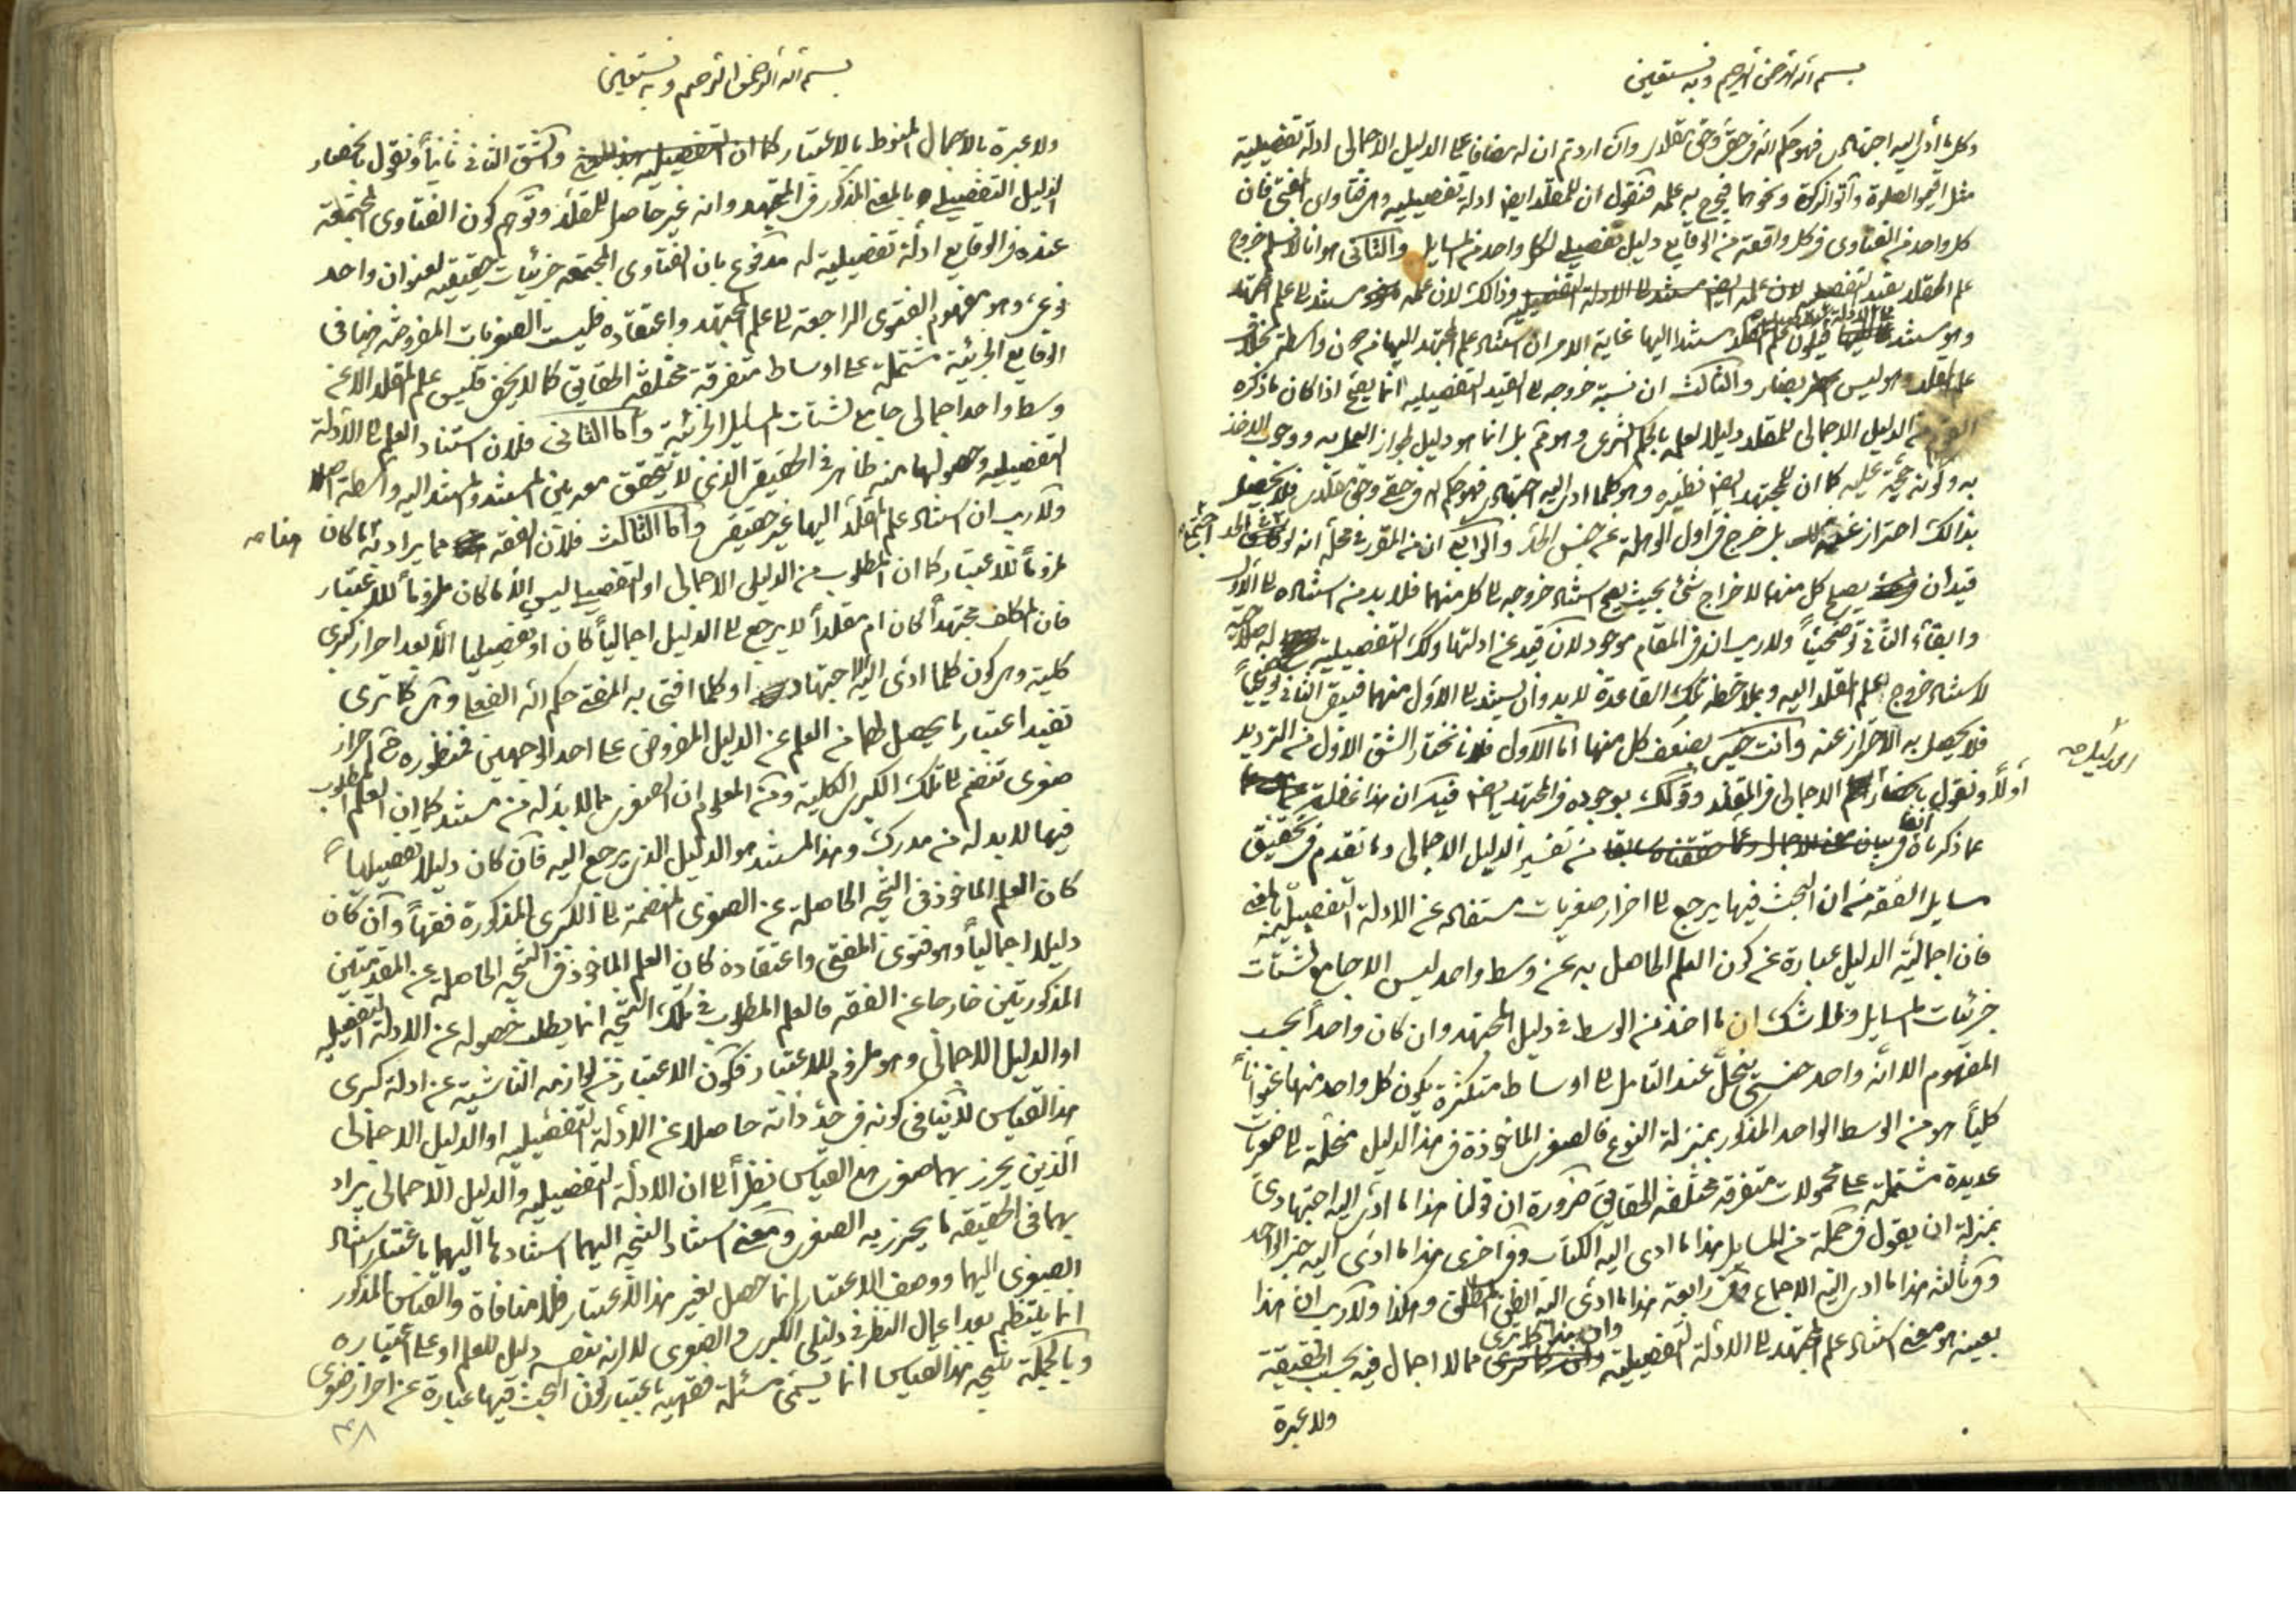 بسم الله الرحمن الرحيم وبه نستعين
وكلما ادى اليه اجتهادى فهو حكم الله فى حقى وحق مقلدى وان اردتم ان له مضافا على الدليل الاجمالى ادلة تفصيلية
مثل اقيموا الصلوة وآتوا الزكوة ونحوهما فيخرج به علمه فنقول ان للمقلد ايضا ادلة تفصيلية وهى فتاوى المفتى فان
كل واحد من الفتاوى فى كل واقعة من الوقايع دليل تفصيلى لكل واحد من المسايل والثانى هو انا لا نسلم خروج
علم المقلد بقيد التفصيلية وذالك لان علمه مستند الى علم المجتهد
وهو مستند الى الادلة فيكون علم المقلد مستندا اليها غاية الامر ان استناد علم المجتهد اليها من دون واسطة بخلاف
علم المقلد وهو ليس بضار والثالث ان نسبة خروجه الى القيد التفصيلية انما يصح اذا كان ما ذكره
القوم من الدليل الاجمالى للمقلد دليلا لعلمه بالحكم الشرعى وهو ثم بل انما هو دليل لجواز العمل به ووجوب الاخذ
به وكونه حجة عليه كما ان للمجتهد ايضا نظيره وهو كلما ادى اليه اجتهادى فهو حكم الله فى حقى وحق مقلدى فلا يحصل
بذالك احتراز عنه بل خرج فى اول الوهلة عن جنس الحد والرابع ان من المقرر فى محله انه لو
قيدان يصلح كل منهما لاخراج شئ بحيث يصح استناد خروجه الى كل منهما فلا بد من استناده الى الاول
وابقاء الثانى توضيحيا ولا ريب انه فى المقام موجود لان قيد عن ادلتها وكذا التفصيلية
لاستناد خروج علم المقلد اليه وبملاحظة تلك القاعدة لا بد وان يستند الى الاول منهما فيبقى الثانى توضيحيا
فلا يحصل به الاحتراز عنه وانت خبير بضعف كل منها اما الاول فلانا نختار الشق الاول من الترديد
اولا ونقول الاجمالى فى المقلد وقولك بوجوده فى المجتهد ايضا فيه ان هذا غفلة
عما ذكرناه آنفا من تفسير الدليل الاجمالى وما تقدم فى تحقيق
مسايل الفقه من ان البحث فيها يرجع الى احراز صغريات مستفادة عن الادلة التفصيلية بالمعنى
فان اجمالية الدليل عبارة عن كون العلم الحاصل به عن وسط واحد ليس الا جامع لشتات
جزئيات المسايل ولا شك ان ما اخذ من الوسط فى دليل المجتهد وان كان واحدا بحسب
المفهوم الا انه واحد جنسى ينحل عند التامل الى اوساط متكثرة يكون كل واحد منها عنوانا
كليا هو من الوسط الواحد المذكور بمنزلة النوع فالصغرى الماخوذة فى هذا الدليل منحلة الى صغريات
عديدة مشتملة على محمولات متفرقة مختلفة الحقايق ضرورة ان قولنا هذا ما ادى اليه اجتهادى
بمنزلة ان يقول فى جملة من المسايل هذا ما ادى اليه الكتاب وفى اخرى هذا ما ادى اليه خبر الواحد
وفى ثالثة هذا ما ادى اليه الاجماع وفى رابعة هذا ما ادى اليه الظن المطلق وهكذا ولا ريب ان هذا
بعينه هو معنى استناد علم المجتهد الى الادلة التفصيلية وان هذا كما ترى مما لا اجمال فيه بحسب الحقيقة
ولا عبرة
بسم الله الرحمن الرحيم وبه نستعين
ولا عبرة بالاجمال المنوط بالاعتبار والشق الثانى ثانيا ونقول بانحصار
الدليل التفصيلى بالمعنى المذكور فى المجتهد وانه غير حاصل للمقلد وتوهم كون الفتاوى المجتمعة
عنده فى الوقايع ادلة تفصيلية له مدفوع بان الفتاوى المجتمعة جزئيات حقيقية لعنوان واحد
نوعى وهو مفهوم الفتوى الراجعة الى علم المجتهد واعتقاده فليست الصغريات المفروضة هنا فى
الوقايع الجزئية مشتملة على اوساط متفرقة مختلفة الحقايق كما لا يخفى فليس علم المقلد الا عن
وسط واحد اجمالى جامع لشتات المسايل الجزئية واما الثانى فلان استناد العلم الى الادلة
التفصيلية وحصولها منه ظاهر فى الحقيقى الذى لا يتحقق معه بين المستند والمستند اليه واسطة اصلا
ولا ريب ان استناد علم المقلد اليها غير حقيقى واما الثالث فلان الفقه مما يراد به ما كان
ملزوما للاعتبار كما ان المطلوب من الدليل الاجمالى او التفصيلى ليس الا ما كان ملزوما للاعتبار
فان المكلف مجتهدا كان ام مقلدا لا يرجع الى الدليل اجماليا كان او تفصيليا الا بعد احراز كبرى
كلية وهى كون كلما ادى اليه الاجتهاد او كلما افتى به المفتى حكم الله الفعلى وهى كما ترى
تفيد اعتبار ما يحصل لهما من العلم عن الدليل المفروض على احد الوجهين فمنظوره ح احراز
صغرى تنضم الى تلك الكبرى الكلية ومن المعلوم ان الصغرى مما لا بد له من مستند كما ان العلم المطلوب
فيها لا بد له من مدرك وهذا المستند هو الدليل الذى يرجع اليه فان كان دليلا تفصيليا
كان العلم الماخوذ فى النتيجة الحاصلة عن الصغرى المنضمة الى الكبرى المذكورة فقها وان كان
دليلا اجماليا وهو فتوى المفتى واعتقاده كان العلم الماخوذ فى النتيجة الحاصلة عن المقدمتين
المذكورتين خارجا عن الفقه فالعلم المطلوب فى تلك النتيجة انما يطلب حصوله عن الادلة التفصيلية
او الدليل الاجمالى وهو ملزوم للاعتبار فكون الاعتبار من لوازمه الناشئة عن ادلة كبرى
هذا القياس لا ينافى كونه فى حد ذاته حاصلا عن الادلة التفصيلية او الدليل الاجمالى
الذين يحرز بهما صغرى هذا القياس نظرا الى ان الادلة التفصيلية والدليل الاجمالى يراد
بهما فى الحقيقة ما يحرز به الصغرى ومعنى استناد النتيجة اليهما استنادها اليهما باعتبار استناد
الصغرى اليهما ووصف الاعتبار انما حصل بغير هذا الاعتبار فلا منافاة والقياس المذكور
انما ينتظم بعد اعمال النظر فى دليلى الكبرى والصغرى لا انه بنفسه دليل للعلم او على اعتباره
وبالجملة نتيجة هذا القياس انما يسمى مسئلة فقهية باعتبار كون البحث فيها عبارة عن احراز صغرى